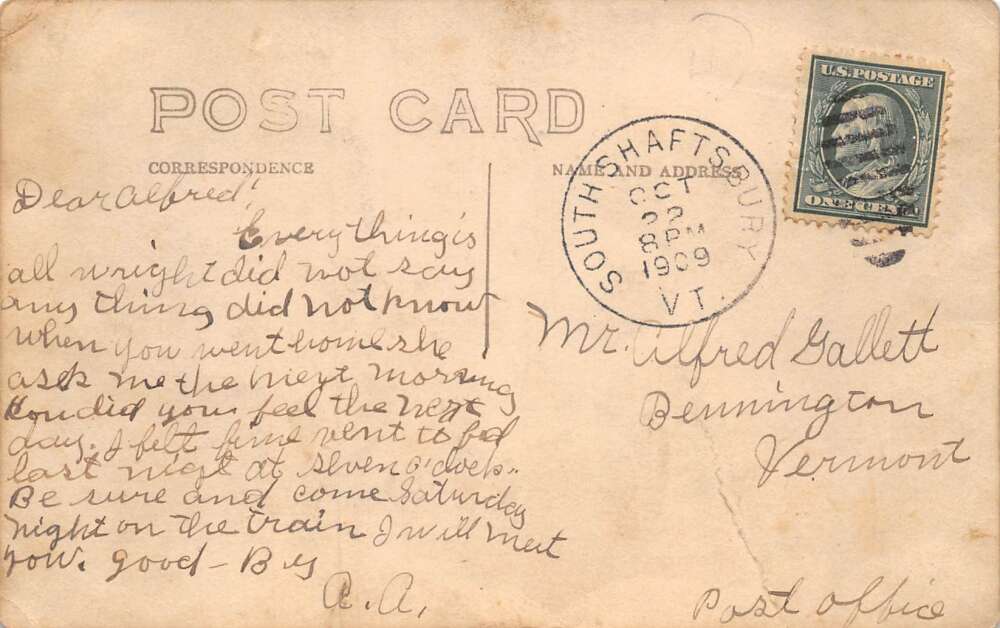 POST CARD
CORRESPONDENCE
NAME AND ADDRESS
U.S. POSTAGE
ONE CENT
SOUTH SHAFTSBURY
OCT
22
8 PM
1909
VT.
Dear Alfred!
Everything is
all wright did not say
any thing did not know
when you went home she
ask me the next morning
How did you feel the next
day. I felt fine went to bed
last night at seven o'clock..
Be sure and come Saturday
night on the train I will meet
you. good-By
A.A.
Mr. Alfred Gallett
Bennington
Vermont
Post office